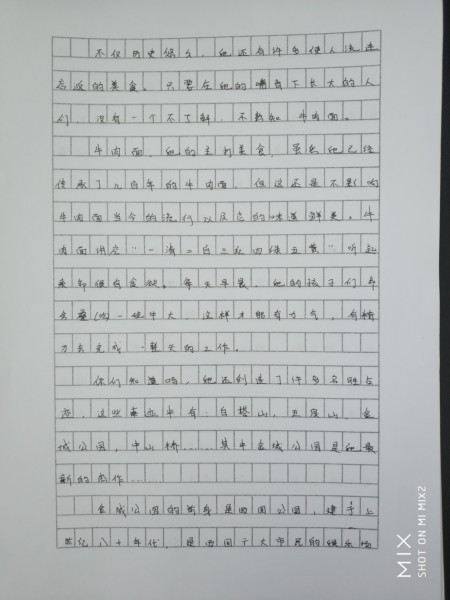 不仅历史悠久，他还有许多使人流连
忘返的美食。只要在他的哺育下长大的人
们，没有一个不了解、不熟知牛肉面。
牛肉面，他的主利美食，虽然他已经
传承了几百年的牛肉面，但这还是不影响
牛肉面当今的流行以及它的味道鲜美。牛
肉面讲究"一清二白三红四绿五黄"听起
来却很有食欲。每天早晨，他的孩子们都
会要吃一碗牛大，这样才能有力气、有精
力去完成一整天的工作。
你们知道吗，他还创造了许多名胜古
迹，这些中有：白塔山、五泉山、金
城公园、中山桥……其中金城公园是他最
新的杰作……
金城公园的前身是西固公园，建于上
世纪八十年代，是西固广大市民的娱乐场
MIX
SHOT ON MI MIX2